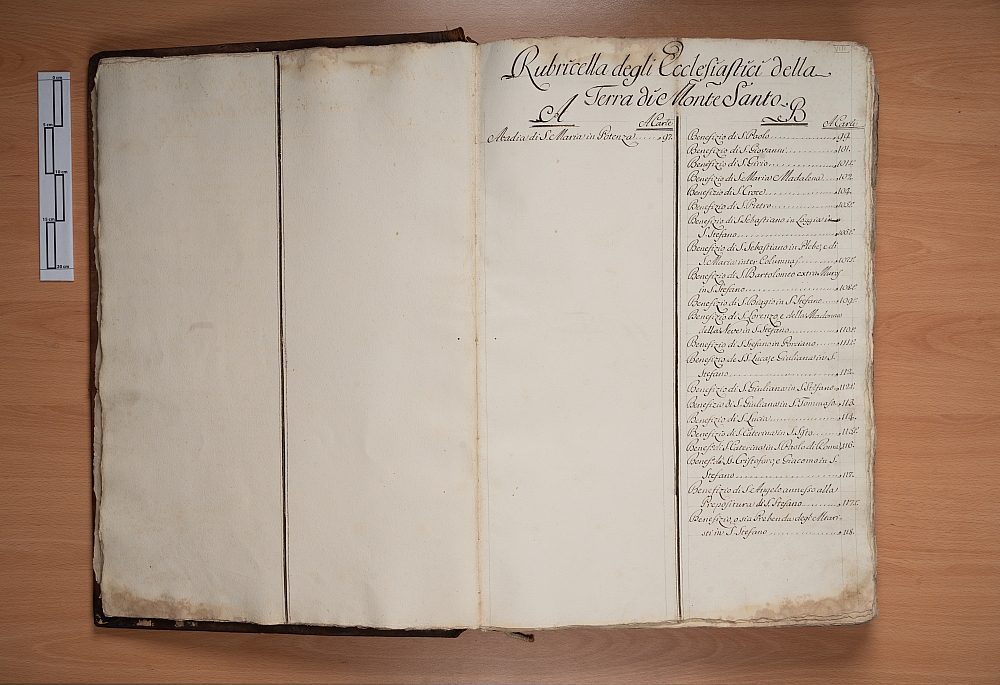 Rubricella degli Ecclesiastici della
Terra di Monte Santo
A
A Carte
Abadia di S. Maria in Potenza 97.
B
A Carte
Benefizio di S. Paolo 99.
Benefizio di S. Giovanni 101.
Benefizio di S. Girio 101t.
Benefizio di S. Maria Madalena 102.
Benefizio di S. Croce 104.
Benefizio di S. Pietro 105t.
Benefizio di S. Sebastiano in Loggia in
S. Stefano 105t.
Benefizio di S. Sebastiano in Plebe, e di
S. Maria inter Columnas 107t.
Benefizio di S. Bartolomeo extra Muros
in S. Stefano 108t.
Benefizio di S. Biagio in S. Stefano 109t.
Benefizio di S. Lorenzo, e della Madonna
della Neve in S. Stefano 110t.
Benefizio di S. Stefano in Porciano 111t.
Benefizio de SS. Luca, e Giuliana in S.
Stefano 112.
Benefizio di S. Giuliana in S. Stefano 112t.
Benefizio di S. Giuliana in S. Tommaso 113.
Benefizio di S. Lucia 114.
Benefizio di S. Caterina in S. Sisto 115t.
Benef. di S. Caterina in S. Paolo di Roma 116.
Benef. de SS. Cristofaro, e Giacomo in S.
Stefano 117.
Benefizio di S. Angelo annesso alla
Prepositura di S. Stefano 117t.
Benefizio, o sia Prebenda degl'Altari-
sti in S. Stefano 118.
0 cm
5 cm
10 cm
15 cm
20 cm